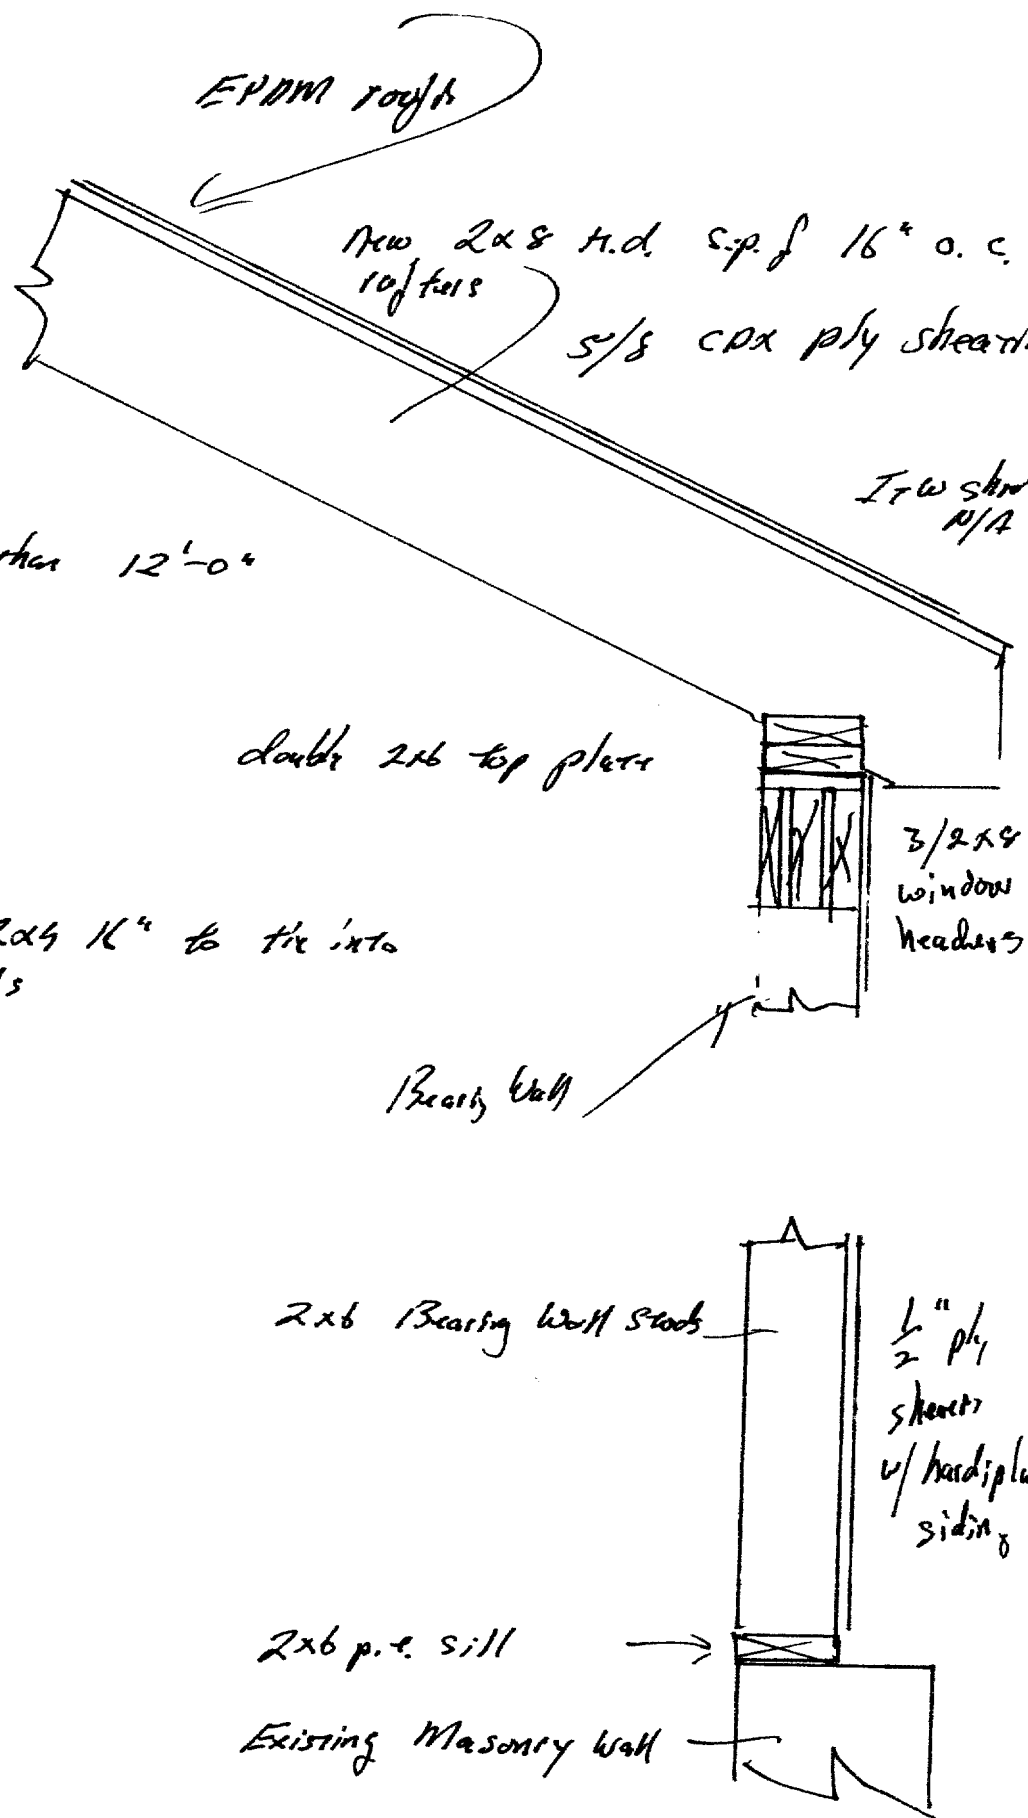 EPDM roof'g
New 2x8 K.d. s.p.f 16" o.c.
rafters
5/8 CDX ply sheath
I+W sh
N/A
than 12'-0"
double 2x6 top plate
3/2x8
window
headers
2x4 16" to tie into
Bearing Wall
2x6 Bearing Wall Studs
1/2" ply
w/ hardipl
siding
2x6 p.t. sill
Existing Masonry Wall